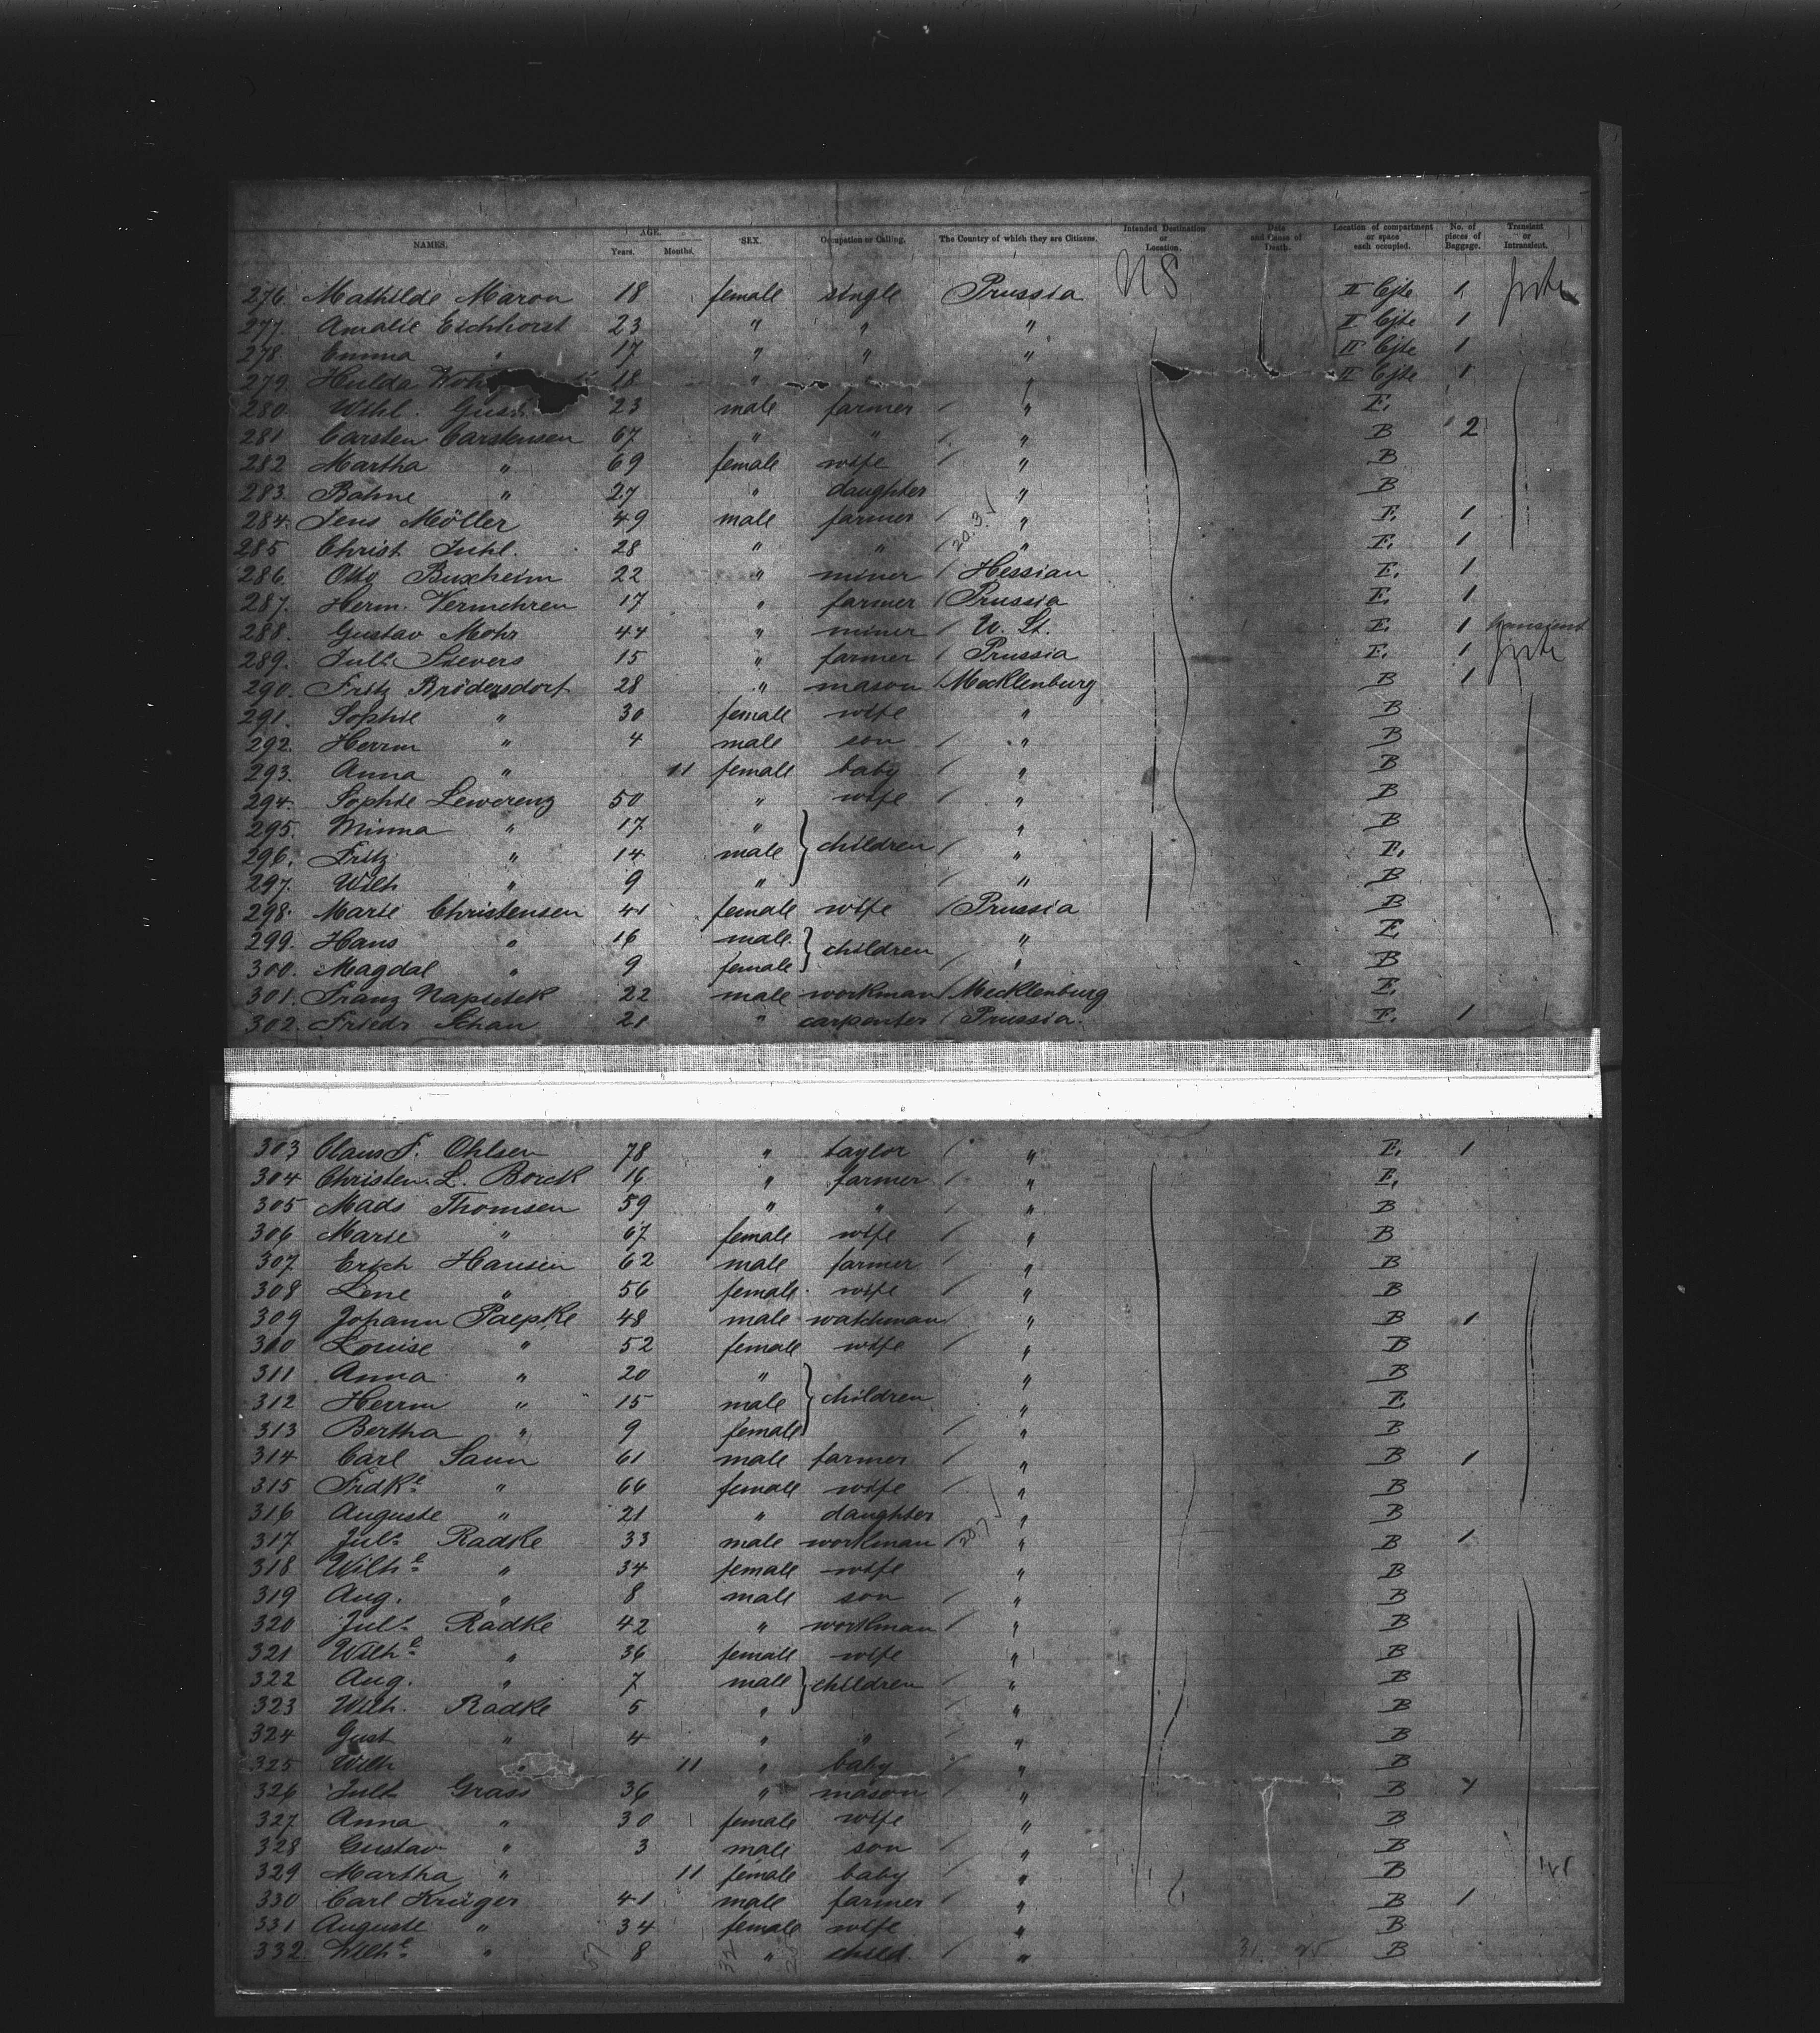 NAMES. AGE. Years. Months. SEX. Occupation or Calling. The Country of which they are Citizens. Intended Destination or Location. Date and Cause of Death. Location of compartment or space each occupied. No. of pieces of Baggage. Transient or Intransient.
276. Mathilde Maron 18 female single Prussia US II Cjte 1
277. Amalie Eichhorst 23 " " " II Cjte 1
278. Emma " 17 " " " II Cjte 1
279. Hulda 18 " " II Cjte 1
280. Wilhl. 23 male farmer / " E.
281 Carsten Carstensen 67 " " / " B 2
282 Martha " 69 female wife / " B
283. Bahne " 27 " daughter " B
284. Jens Möller 49 male farmer / " E. 1
285 Christ Juhl. 28 " " / " E. 1
286. Otto Buxheim 22 " miner / Hessian E. 1
287. Herm. Vermehren 17 " farmer / Prussia E. 1
288. Gustav Mohr 44 " miner / U. St. E. 1 transient
289. Juls. Sievers 15 " farmer / Prussia E. 1
290. Fritz Brödersdorf 28 " mason / Mecklenburg B 1
291. Sophie " 30 female wife " B
292. Herrm " 4 male son / " B
293. Anna " 11 female baby / " B
294. Sophie Lewerenz 50 " wife / " B
295. Minna " 17 " " B
296. Fritz " 14 male children / " E.
297. Wilh " 9 " / " B
298. Marie Christensen 41 female wife / Prussia B
299. Hans " 16 male children " E
300. Magdal " 9 female / " B
301. Franz Napietek 22 male workman / Mecklenburg E.
302. Friedr Schau 21 " carpenter / Prussia. E. 1
303 Claus F. Ohlsen 78 " taylor / " E. 1
304 Christen. L. Borck 16 " farmer / " E.
305 Mads Thomsen 59 " " / " B
306 Marie " 67 female wife / " B
307 Erich Hansen 62 male farmer / " B
308 Lene " 56 female wife / " B
309 Johann Paepke 48 male watchman / " B 1
310 Louise " 52 female wife / " B
311 Anna " 20 " " B
312 Herrm " 15 male children " E
313 Bertha " 9 female / " B
314 Carl Saun 61 male farmer / " B 1
315 Frdke " 66 female wife / " B
316 Auguste " 21 " daughter " B
317 Juls Radke 33 male workman / " B 1
318 Wilhe " 34 female wife " B
319 Aug. " 8 male son / " B
320 Juls Radke 42 " workman / " B
321 Wilhe " 36 female wife " B
322 Aug. " 7 male children / " B
323 Wilh. Radke 5 " / " B
324 Gust " 4 " " / " B
325 Wilh " 11 " baby / " B
326 Juls Grass 36 " mason / " B 1
327 Anna " 30 female wife " B
328 Gustav " 3 male son / " B
329 Martha " 11 female baby / " B
330 Carl Krüger 41 male farmer / " B 1
331 Auguste " 34 female wife " B
332 Wilhe " 8 " child. / " B